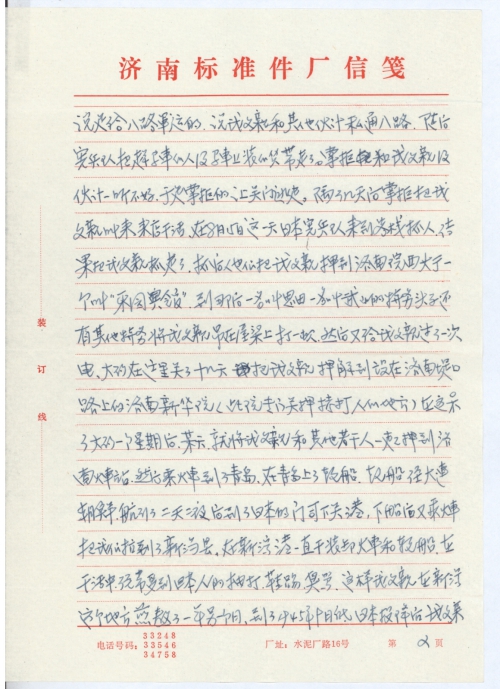 济南标准件厂信笺
说是给八路军运的，说我父亲和其他伙计私通八路，随后
宪兵队把赶车的人及车上装的货带走了。掌柜和我父亲及
伙计一听不好，于是掌柜的让关门避避。隔了几天后掌柜把我
父亲叫来店干活，在8月15日这一天日本宪兵队来到货栈抓人，结
果把我父亲抓走了，抓后他们把我父亲押到济南院西大街一
个叫"宋园"到那后一名叫 一名叫武山的特务头子还
有其他特务将我父亲吊在屋梁上打一次，然后又给我父亲过了一次
电，大约在这里关了十几天把我父亲押解到设在济南堤口
路上的济南新华院（此院专门关押拷打人们的地方）在这里
了大约一个星期后，就将我父亲和其他若干人一起押到济
南火车站，然后乘火车到了青岛，在青岛上了轮船，轮船经大连
朝鲜，航行了二天二夜后到了日本的门司下关港，下船后又乘火车
把我们拉到了新潟县，在新潟港一直干装卸火车和轮船，在
干活中经常受到日本人的抽打，鞋踢，臭骂，这样我父亲在新潟
这个地方煎熬了一年另十月，到了1945年10月 日本投降后我父亲
装
订
线
电话号码：33248
33546
34758
厂址：水泥厂路16号
第 2 页